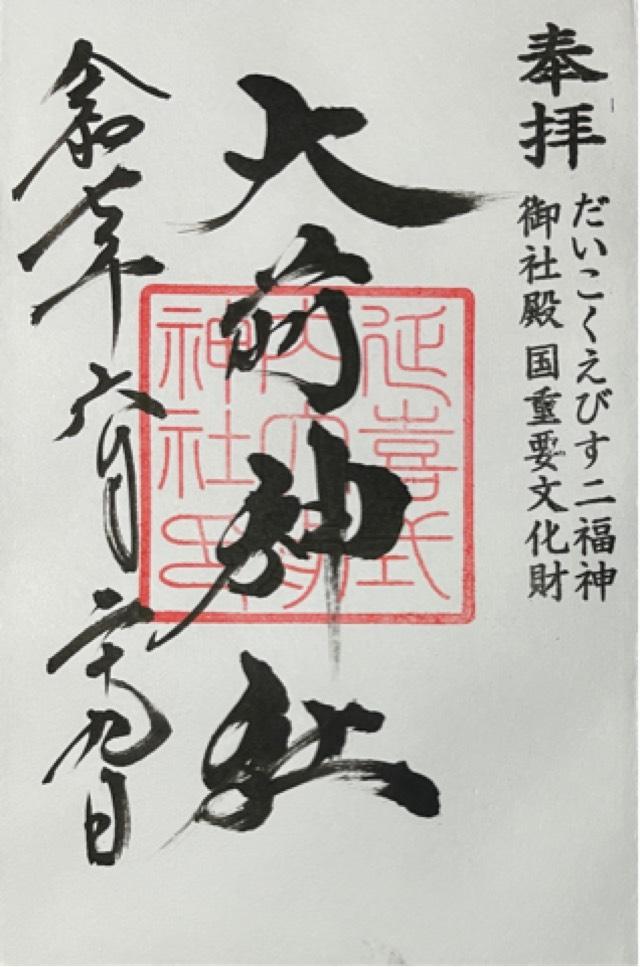 奉拝
だいこくえびす二福神
御社殿 国重要文化財
大前神社
延喜式
内大前
神社印
令和七年六月二十九日